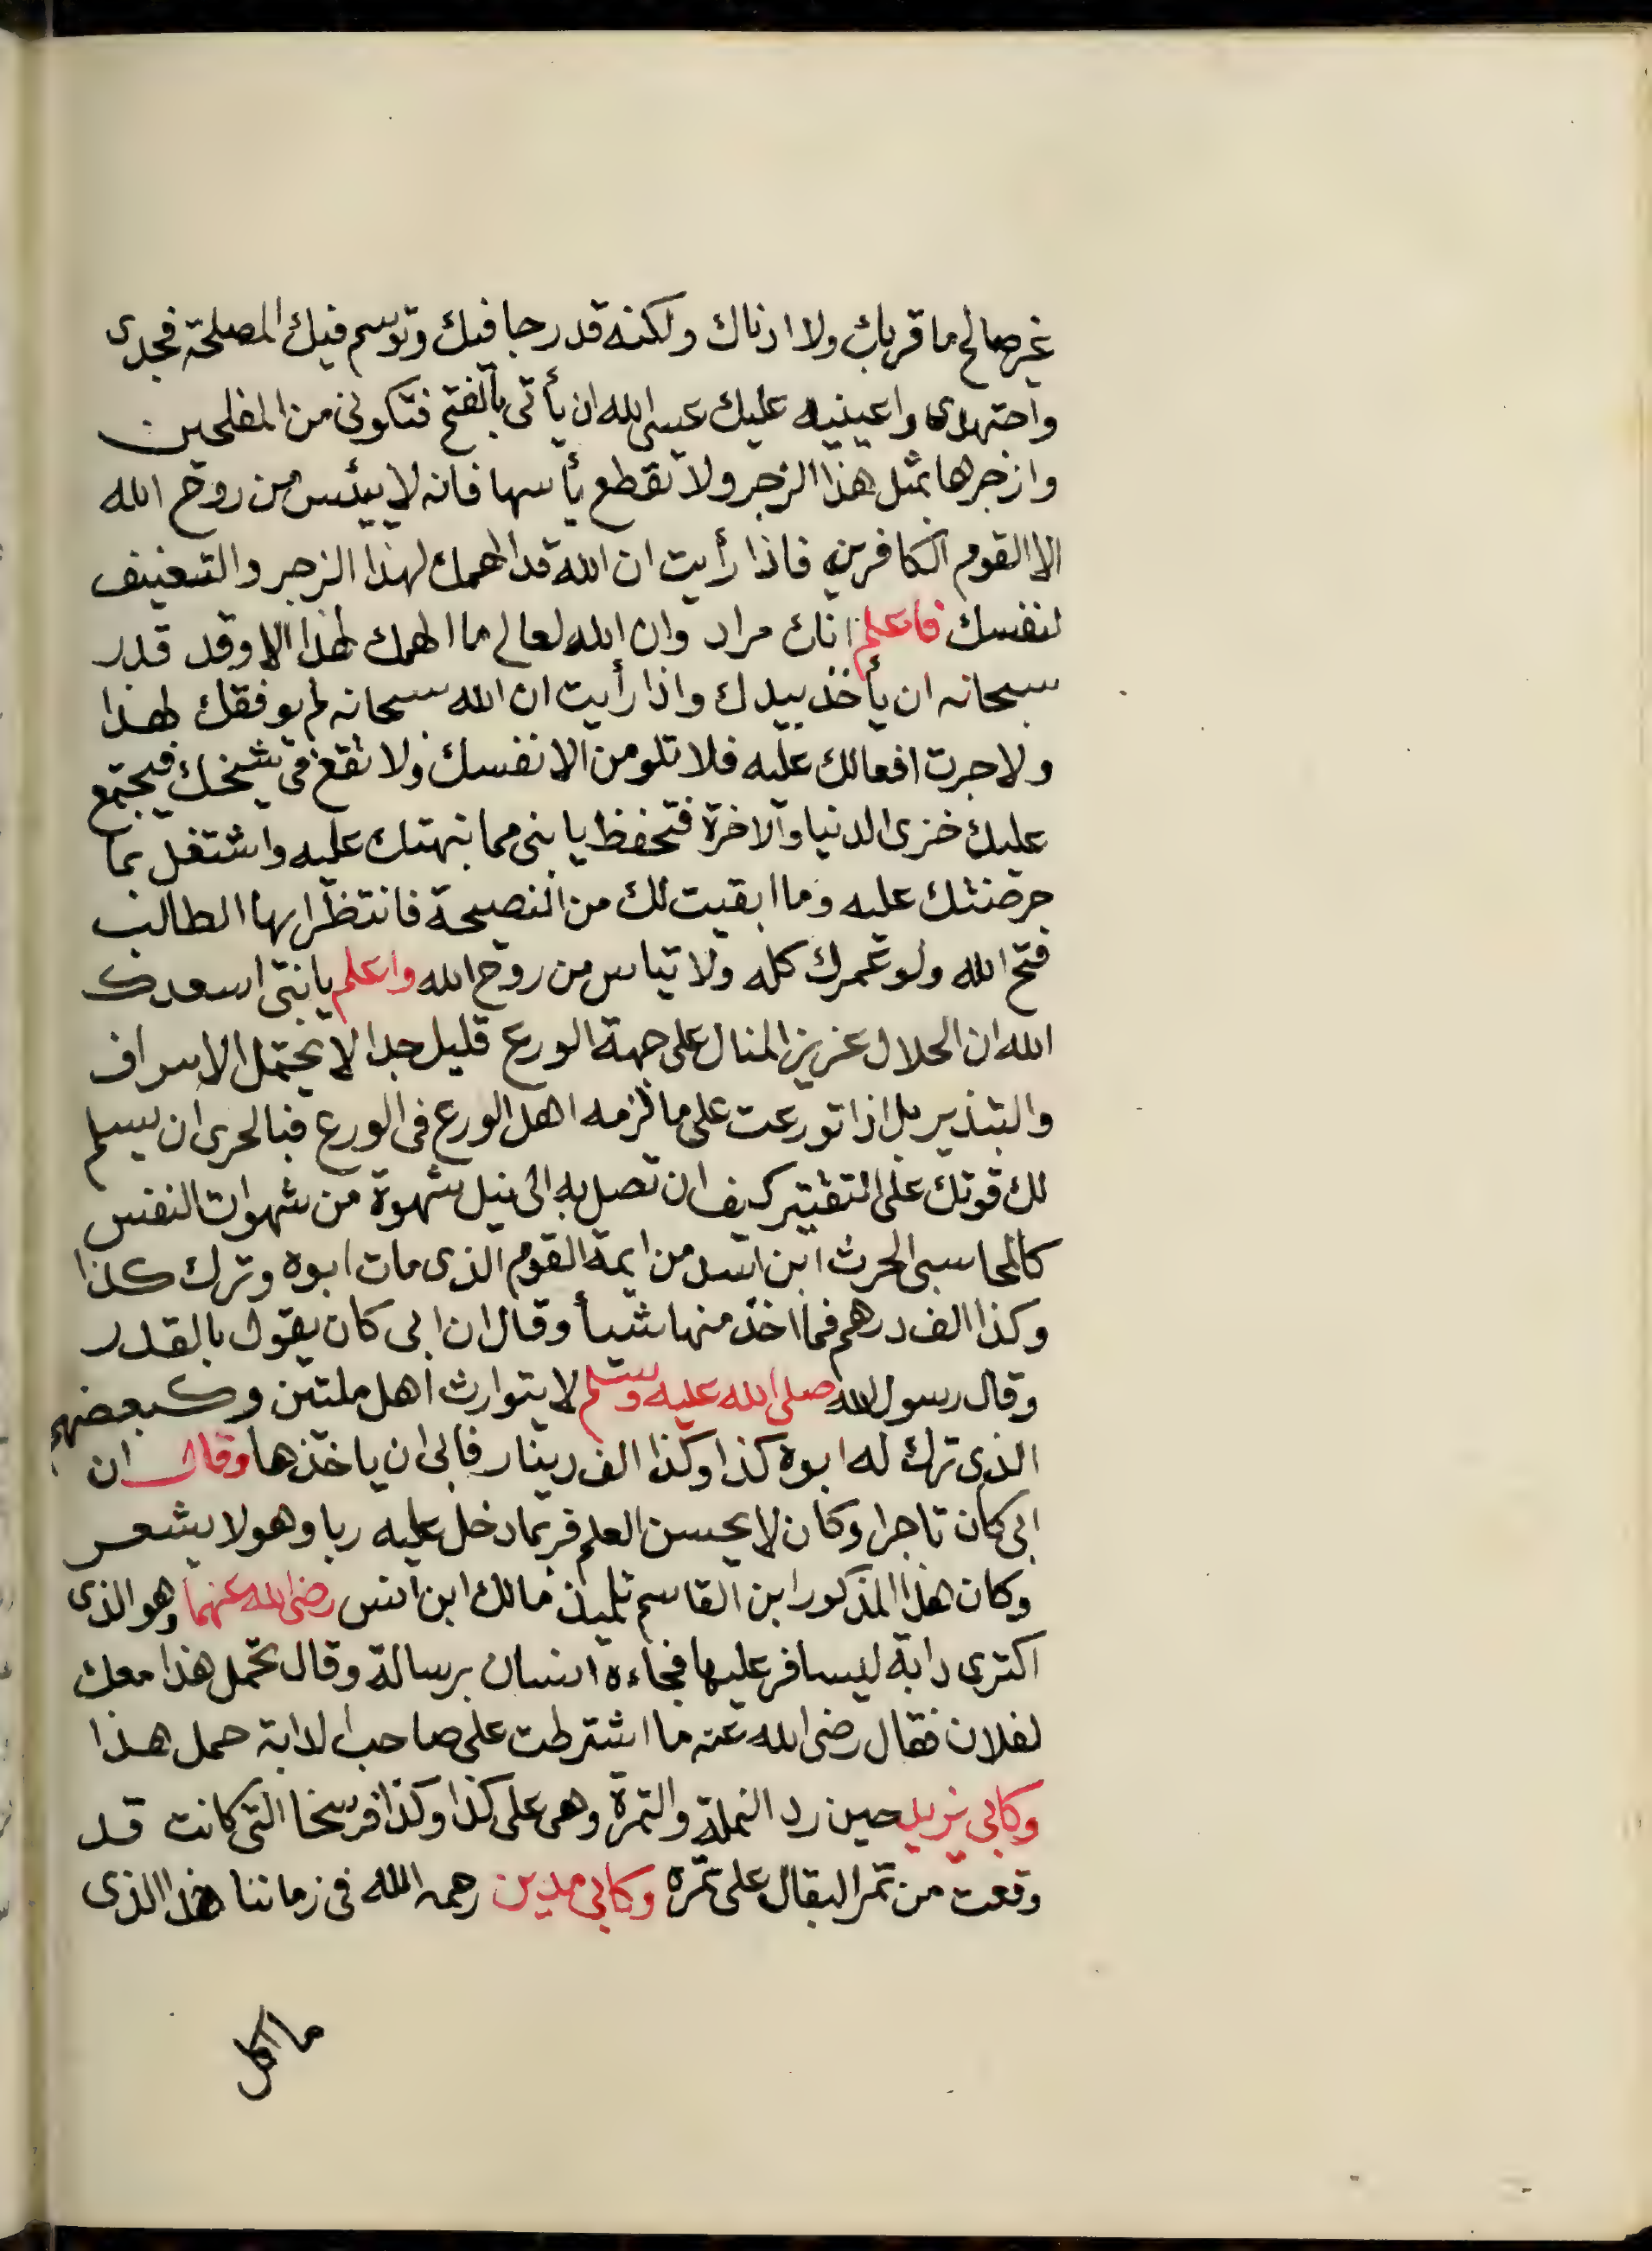 غير صالح ما قربك ولا ادناك ولكنه قد رجا فيك وتوسم فيك المصلحة فجدى
واجتهدى واعينيه عليك عسى الله ان يأتى بالفتح فتكونى من المفلحين
وازجرها بمثل هذا الزجر ولا تقطع يأسها فانه لا ييئس من روح الله
الا القوم الكافرين فاذا رأيت ان الله قد الهمك لهذا الزجر والتعنيف
لنفسك فاعلم انك مراد وان الله تعالى ما الهمك لهذا الا وقد قدر
سبحانه ان يأخذ بيدك واذا رأيت ان الله سبحانه لم يوفقك لهذا
ولا جرت افعالك عليه فلا تلومن الا نفسك ولا تقع فى شيخك فيجتمع
عليك خزى الدنيا والاخرة فتحفظ يا بنى مما نبهتك عليه واشتغل بما
حرضتك عليه وما ابقيت لك من النصيحة فانتظر ايها الطالب
فتح الله ولو عمرك كله ولا تياس من روح الله واعلم يا بنى اسعدك
الله ان الحلال عزيز المنال على جهة الورع قليل جدا لا يحتمل الاسراف
والتبذير بل اذا تورعت على ما لزمه اهل الورع فى الورع فبالحرى ان يسلم
لك قوتك على التقتير كيف ان تصل به الى نيل شهوة من شهوات النفس
كالمحاسبى الحرث ابن اسد من ايمة القوم الذى مات ابوه وترك كذا
وكذا الف درهم فما اخذ منها شيأ وقال ان ابى كان يقول بالقدر
وقال رسول الله صلى الله عليه وسلم لا يتوارث اهل ملتين وكبعضهم
الذى ترك له ابوه كذا وكذا الف دينار فابى ان ياخذها وقال ان
ابى كان تاجرا وكان لا يحسن العلم فربما دخل عليه ربا وهو لا يشعر
وكان هذا المذكور ابن القاسم تلميذ مالك ابن انس رضى الله عنهما وهو الذى
اكترى دابة ليسافر عليها فجاءه انسان برسالة وقال تحمل هذا معك
لفلان فقال رضى الله عنه ما اشترطت على صاحب الدابة حمل هذا
وكابى يزيد حين رد النملة والتمرة وهى على كذا وكذا فرسخا التى كانت قد
وقعت من تمر البقال على تمره وكابى مدين رحمه الله فى زماننا هذا الذى
ما اكل